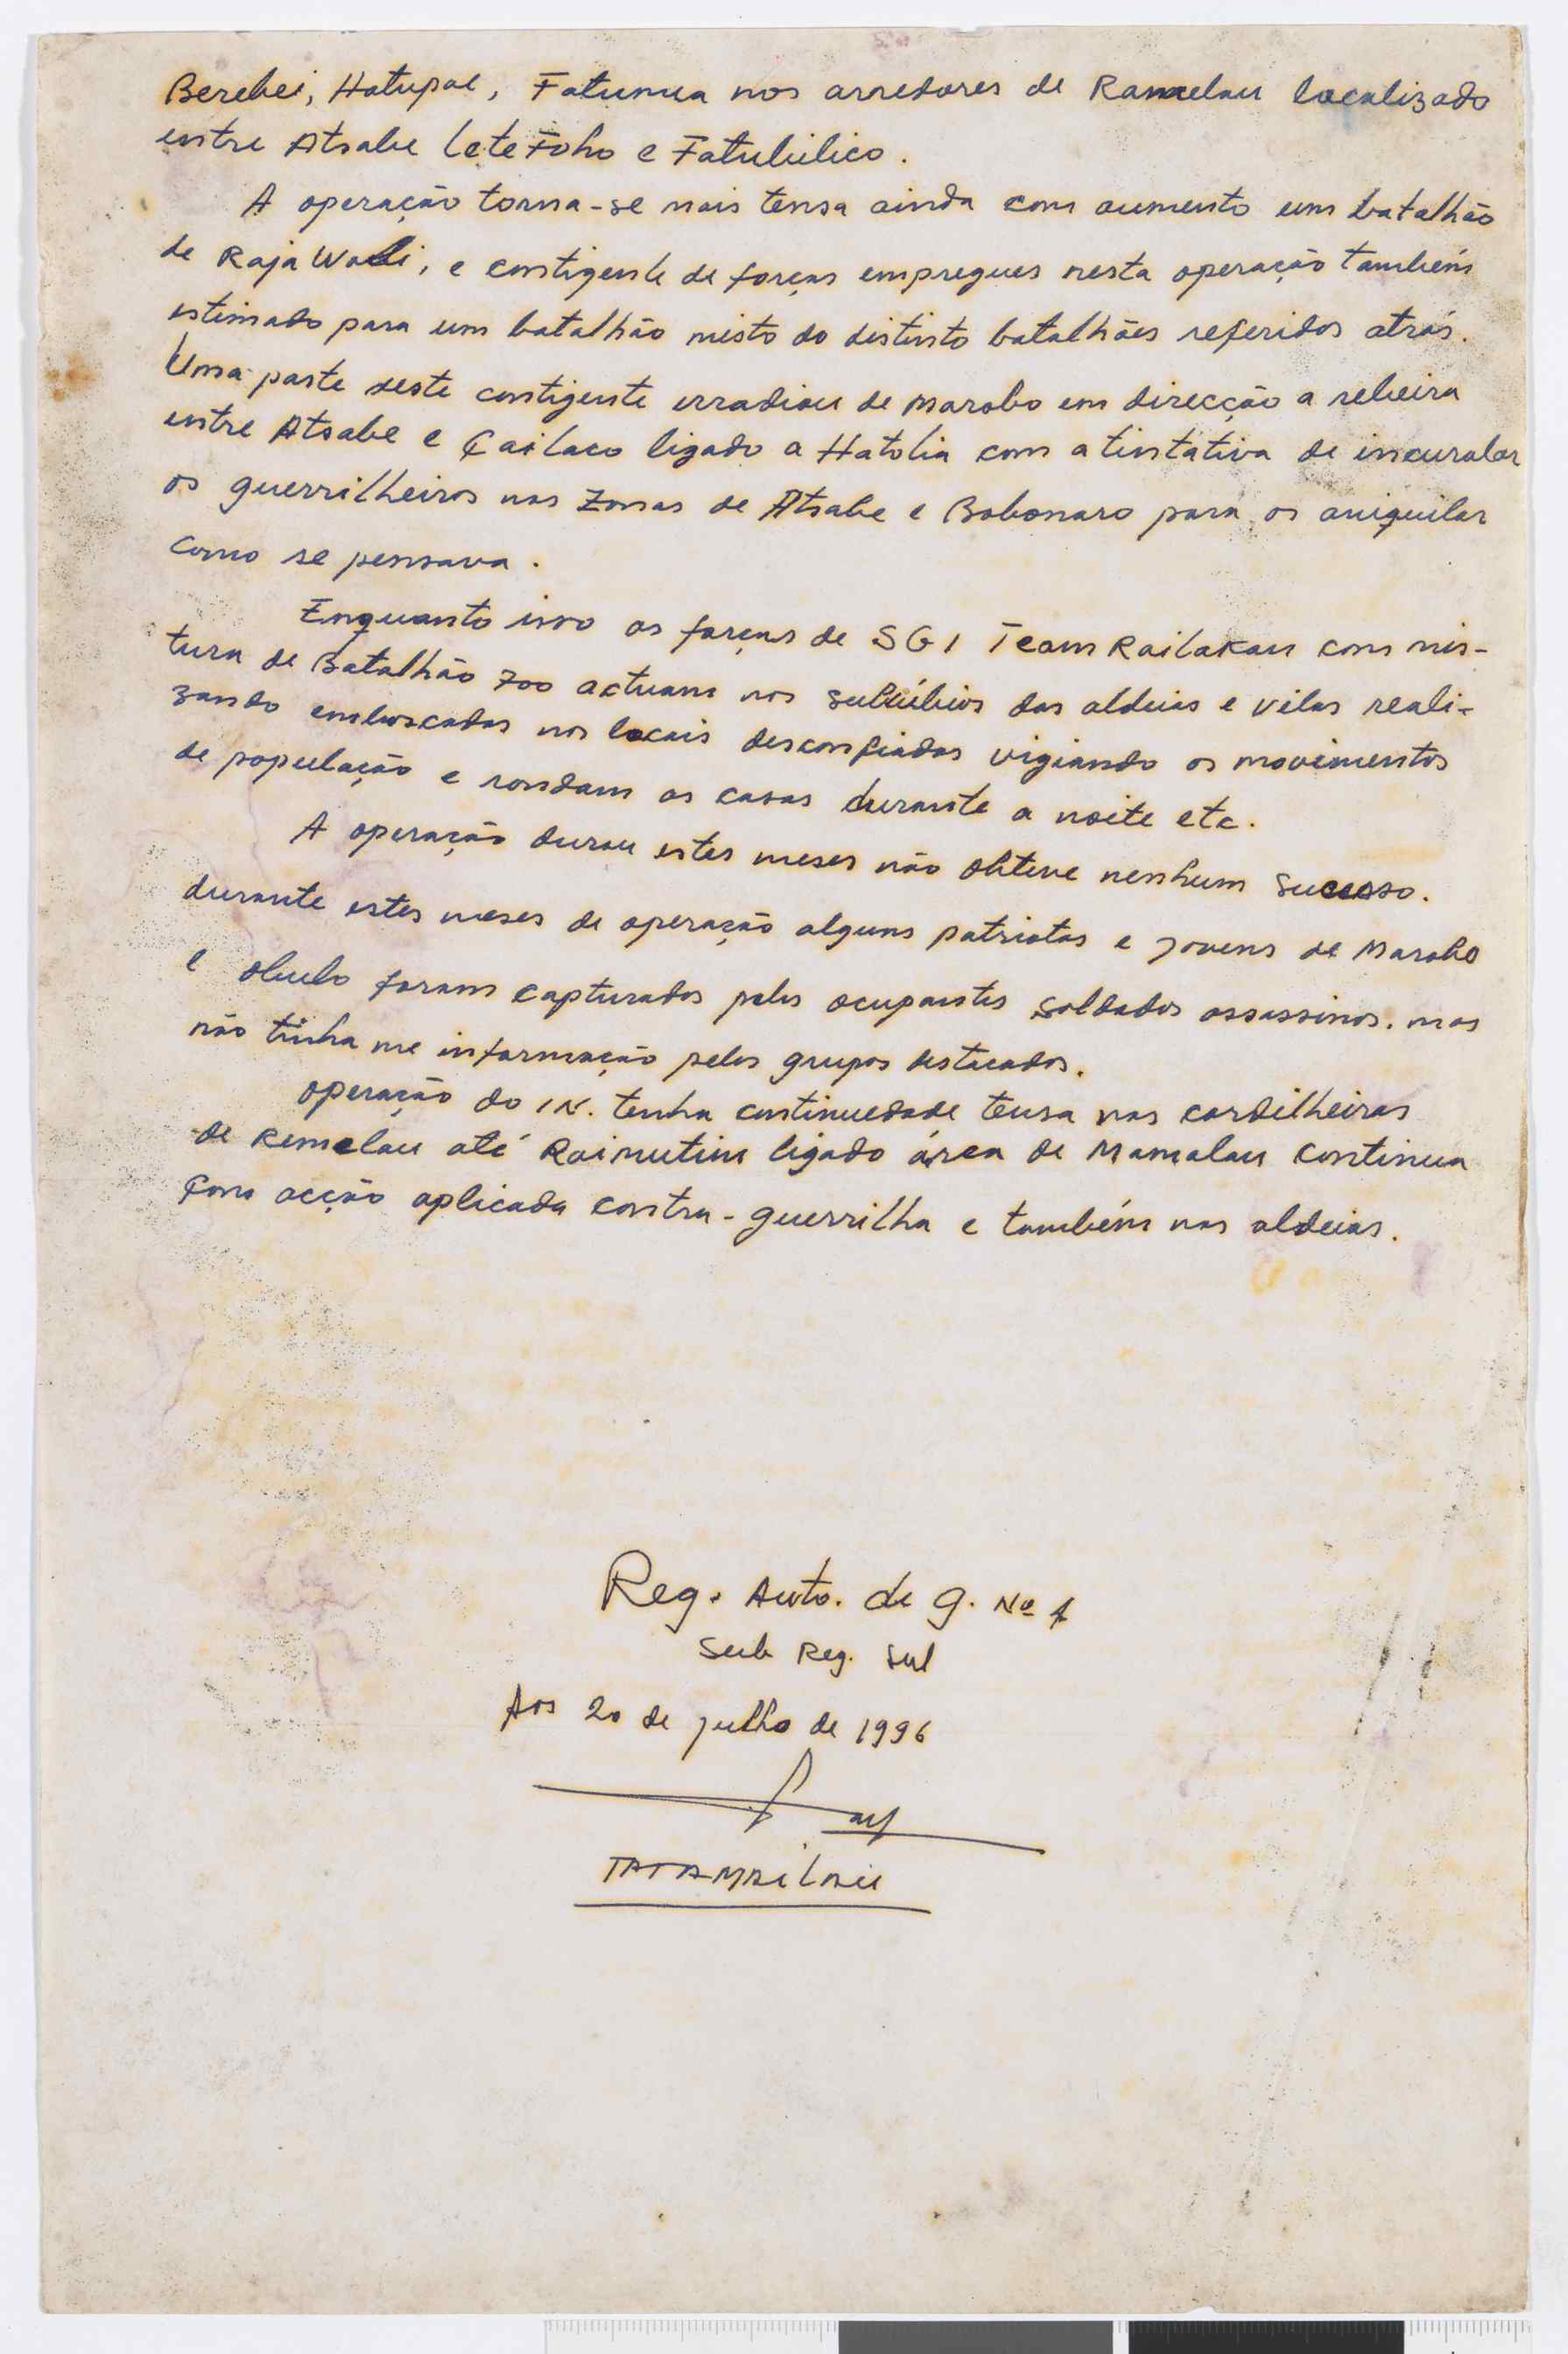 Berebei, Hatupae, Fatumea nos arredores de Ramelau localizado
entre Atsabe Letefoho e Fatubilico.
A operação torna-se mais tensa ainda com aumento um batalhão
de Raja Wali, e contigente de forças empregues nesta operação também
estimado para um batalhão misto do distinto batalhões referidos atrás.
Uma parte deste contigente irradiou de Marobo em direcção a rebeira
entre Atsabe e Cailaco ligado a Hatolia com a tintativa de incuralar
os guerrilheiros nas zonas de Atsabe e Bobonaro para os aniquilar
como se pensava.
Enquanto isso as forças de SGI Team Railakan com mis-
tura de Batalhão 700 actuam nos subúbios das aldeias e vilas reali-
zando emboscadas nos locais desconfiados vigiando os movimentos
de população e rondam as casas durante a noite etc.
A operação durou estes meses não obteve nenhum sucesso.
durante estes meses de operação alguns patriotas e jovens de Marobo
e Obulo foram capturados pelos ocupantes soldados assassinos. mas
não tinha me informação pelos grupos destacados.
Operação do IN. tenha continuedade tensa nas cordilheiras
de Remelau até Raimutin ligado área de Mamalau continua
com acção aplicada contra-guerrilha e também nas aldeias.
Reg. Auto. de g. Nº 1
Sub Reg. Sul
Aos 20 de julho de 1996
TATAMAILAU